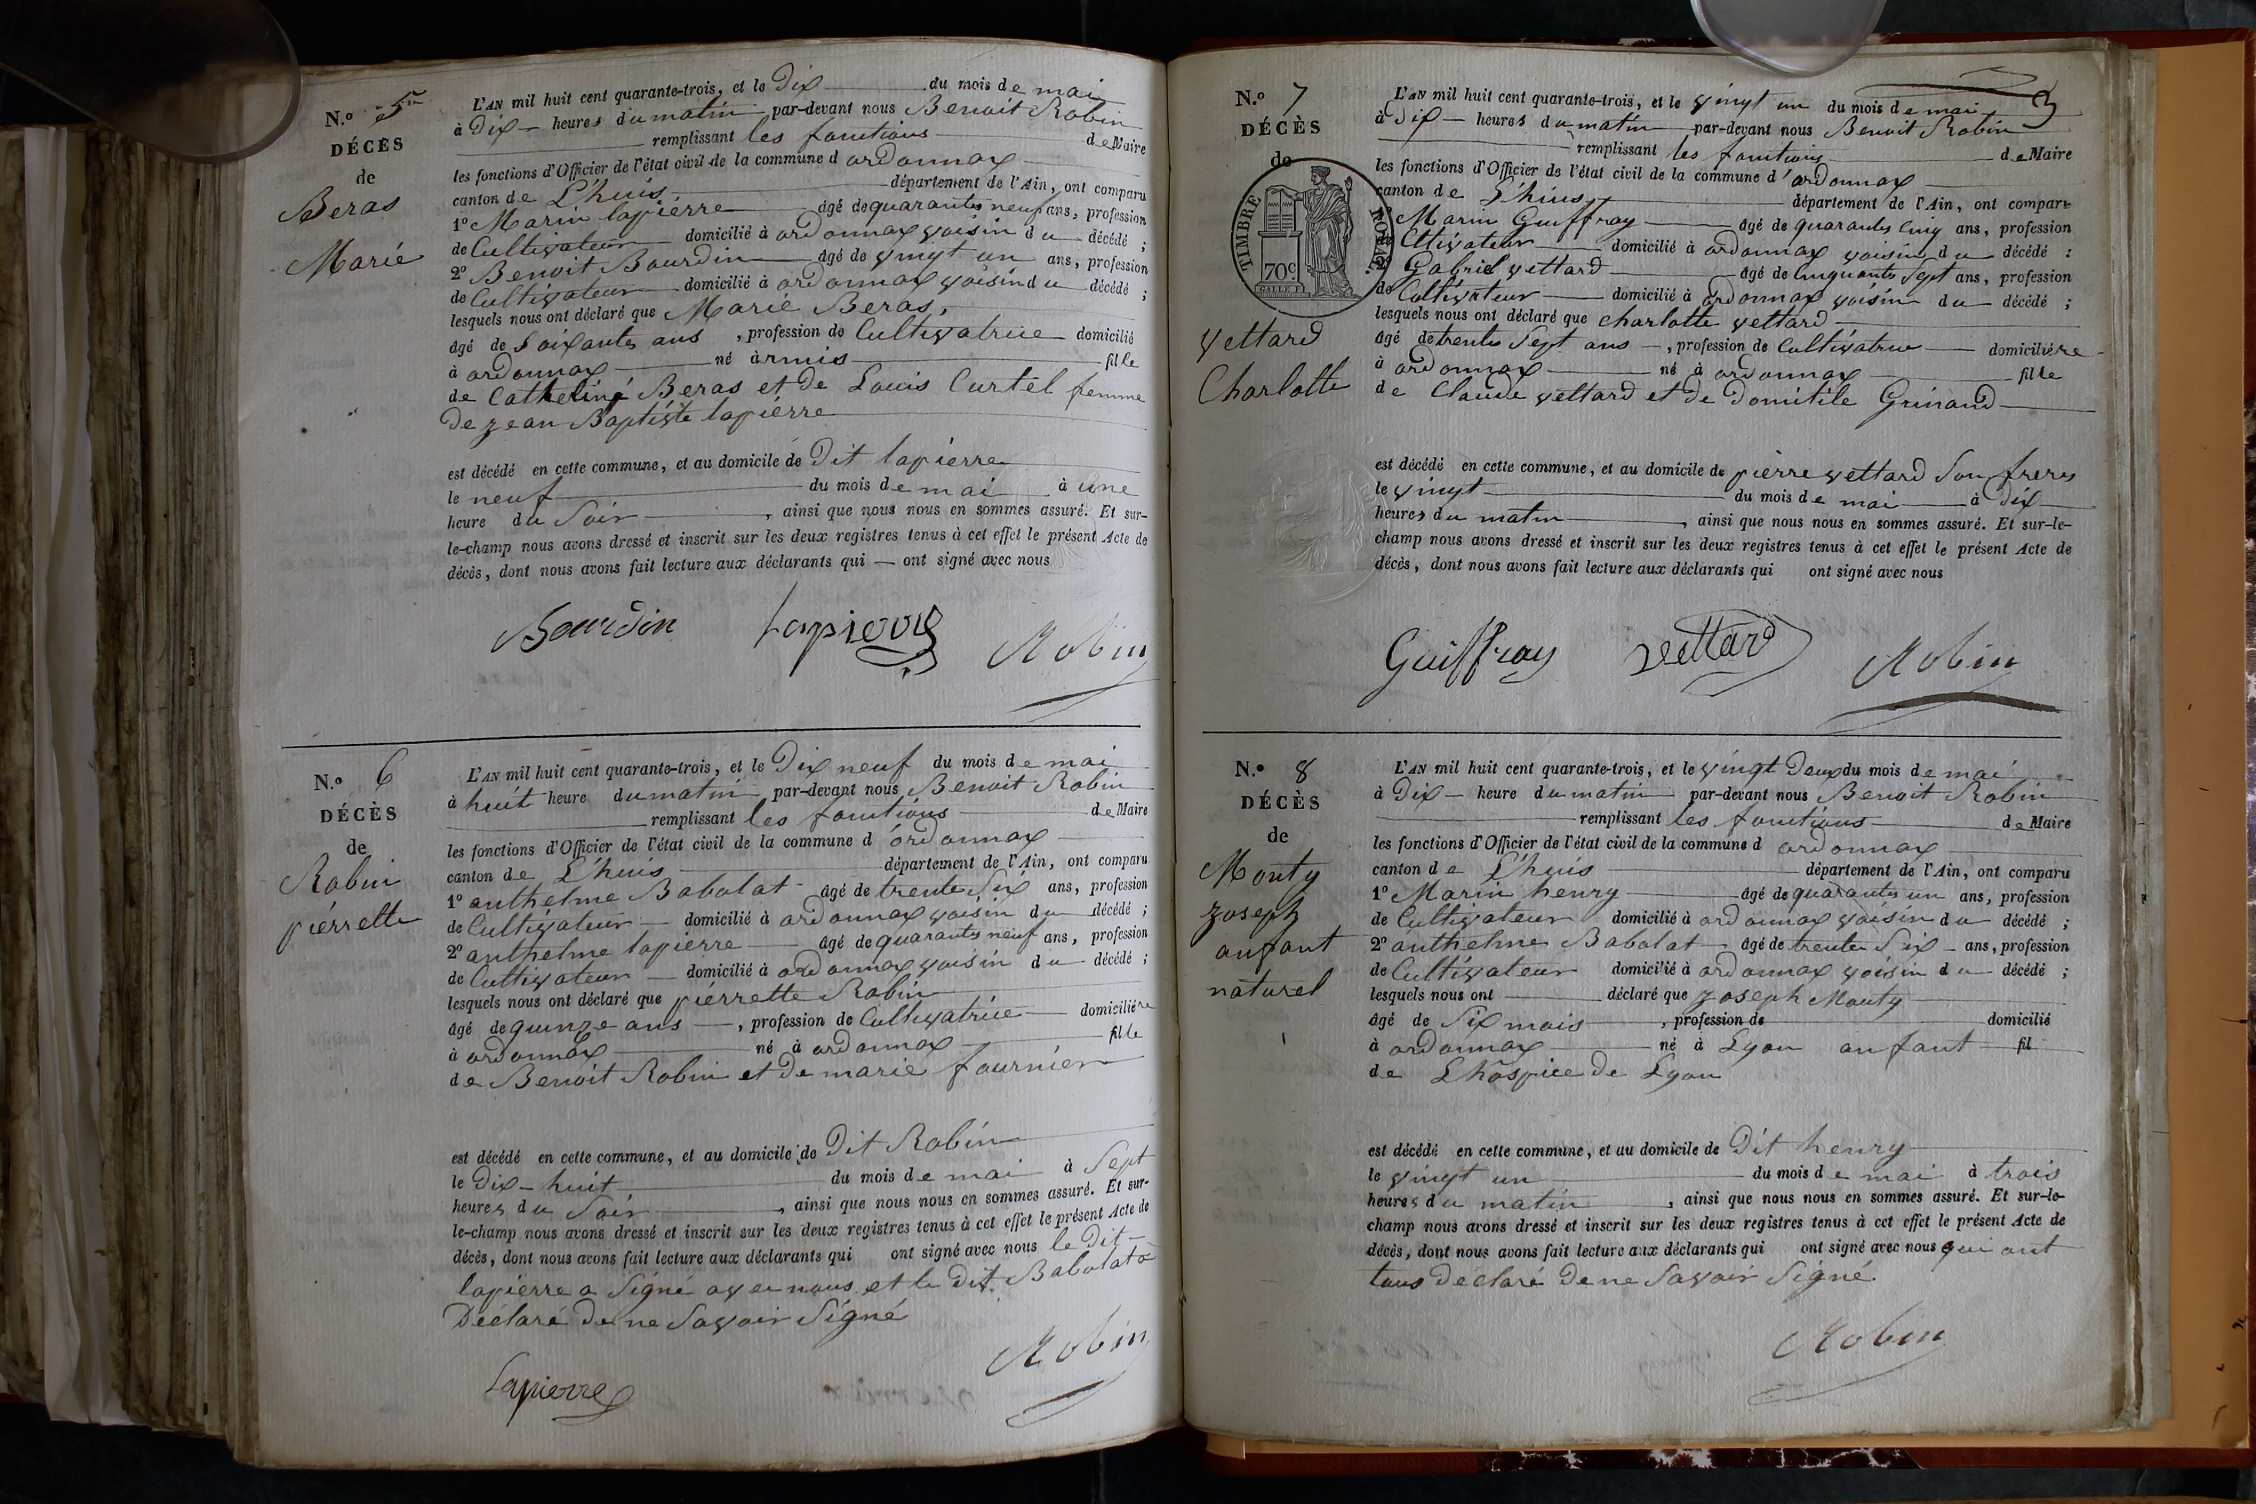 N.º 5
DÉCÈS
de
Beras
Marié
L'AN mil huit cent quarante-trois, et le Dix du mois de mai
à Dix heures du matin par-devant nous Benoit Robin
remplissant les fonctions de Maire
les fonctions d'Officier de l'état civil de la commune d ordonnax
canton de L'huis département de l'Ain, ont comparu
1º Marin lapiérre âgé de quarante neuf ans, profession
de Cultivateur domicilié à ordonnax voisin du décédé ;
2º Benoit Bourdin âgé de vingt un ans, profession
de Cultivateur domicilié à ordonnax voisin du décédé ;
lesquels nous ont déclaré que Marie Beras,
âgé de Soixante ans , profession de Cultivatrice domicilié
à ordonnax né à fille
de Catheliné Beras et de Louis Curtel femme
De jean Baptiste lapiérre
est décédé en cette commune, et au domicile de Dit lapiérre
le neuf du mois de mai à une
heure du Soir , ainsi que nous nous en sommes assuré. Et sur-
le-champ nous avons dressé et inscrit sur les deux registres tenus à cet effet le présent Acte de
décès, dont nous avons fait lecture aux déclarants qui — ont signé avec nous
Bourdin Lapierre Robin
N.º 6
DÉCÈS
de
Robin
piérrette
L'AN mil huit cent quarante-trois, et le Dix neuf du mois de mai
à huit heure du matin par-devant nous Benoit Robin
remplissant les fonctions de Maire
les fonctions d'Officier de l'état civil de la commune d ordonnax
canton de L'huis département de l'Ain, ont comparu
1º anthelme Babolat âgé de trente Six ans, profession
de Cultivateur domicilié à ordonnax voisin du décédé ;
2º anthelme lapierre âgé de quarante neuf ans, profession
de Cultivateur domicilié à ordonnax voisin du décédé ;
lesquels nous ont déclaré que piérrette Robin
âgé de quinze ans , profession de Cultivatrice domiciliére
à ordonnax né à ordonnax fille
de Benoit Robin et De marie fournier
est décédé en cette commune, et au domicile de Dit Robin
le Dix-huit du mois de mai à Sept
heures du Soir , ainsi que nous nous en sommes assuré. Et sur-
le-champ nous avons dressé et inscrit sur les deux registres tenus à cet effet le présent Acte de
décès, dont nous avons fait lecture aux déclarants qui ont signé avec nous le Dit
lapierre a Signé avec nous et le Dit Babolat à
Déclaré De ne Savoir Signé
Lapierre Robin
3
N.º 7
DÉCÈS
de
TIMBRE ROYAL.
70c
Vettard
Charlotte
L'AN mil huit cent quarante-trois, et le vingt un du mois de mai
à Dix heures du matin par-devant nous Benoit Robin
remplissant les fonctions de Maire
les fonctions d'Officier de l'état civil de la commune d'ordonnax
canton de L'huis département de l'Ain, ont comparu
Marin Guiffray âgé de quarante Cinq ans, profession
Cltivateur domicilié à ordonnax voisin du décédé ;
Gabriel vettard âgé de Cinquante Sept ans, profession
de Cultivateur domicilié à ordonnax voisin du décédé ;
lesquels nous ont déclaré que charlotte vettard
âgé de trente Sept ans , profession de Cultivatrice domiciliére
à ordonnax né à ordonnax fille
de Claude vettard et De Domitile Grinand
est décédé en cette commune, et au domicile de piérre vettard Son freres
le vingt du mois de mai à Dix
heures du matin , ainsi que nous nous en sommes assuré. Et sur-le-
champ nous avons dressé et inscrit sur les deux registres tenus à cet effet le présent Acte de
décès, dont nous avons fait lecture aux déclarants qui ont signé avec nous
Guiffray Vettard Robin
N.º 8
DÉCÈS
de
Monty
Joseph
anfant
naturel
L'AN mil huit cent quarante-trois, et le vingt Deux du mois de mai
à Dix heure du matin par-devant nous Benoit Robin
remplissant les fonctions de Maire
les fonctions d'Officier de l'état civil de la commune d ordonnax
canton de L'huis département de l'Ain, ont comparu
1º Marin henry âgé de quarante un ans, profession
de Cultivateur domicilié à ordonnax voisin du décédé ;
2º anthelme Babolat âgé de trente Six ans, profession
de Cultivateur domicilié à ordonnax voisin du décédé ;
lesquels nous ont déclaré que Joseph Monty
âgé de Six mois , profession de domicilié
à ordonnax né à Lyon anfant fil
de L'hospice De Lyon
est décédé en cette commune, et au domicile de Dit henry
le vingt un du mois de mai à trois
heures du matin , ainsi que nous nous en sommes assuré. Et sur-le-
champ nous avons dressé et inscrit sur les deux registres tenus à cet effet le présent Acte de
décès, dont nous avons fait lecture aux déclarants qui ont signé avec nous qui ont
tous Déclaré De ne Savoir Signé
Robin